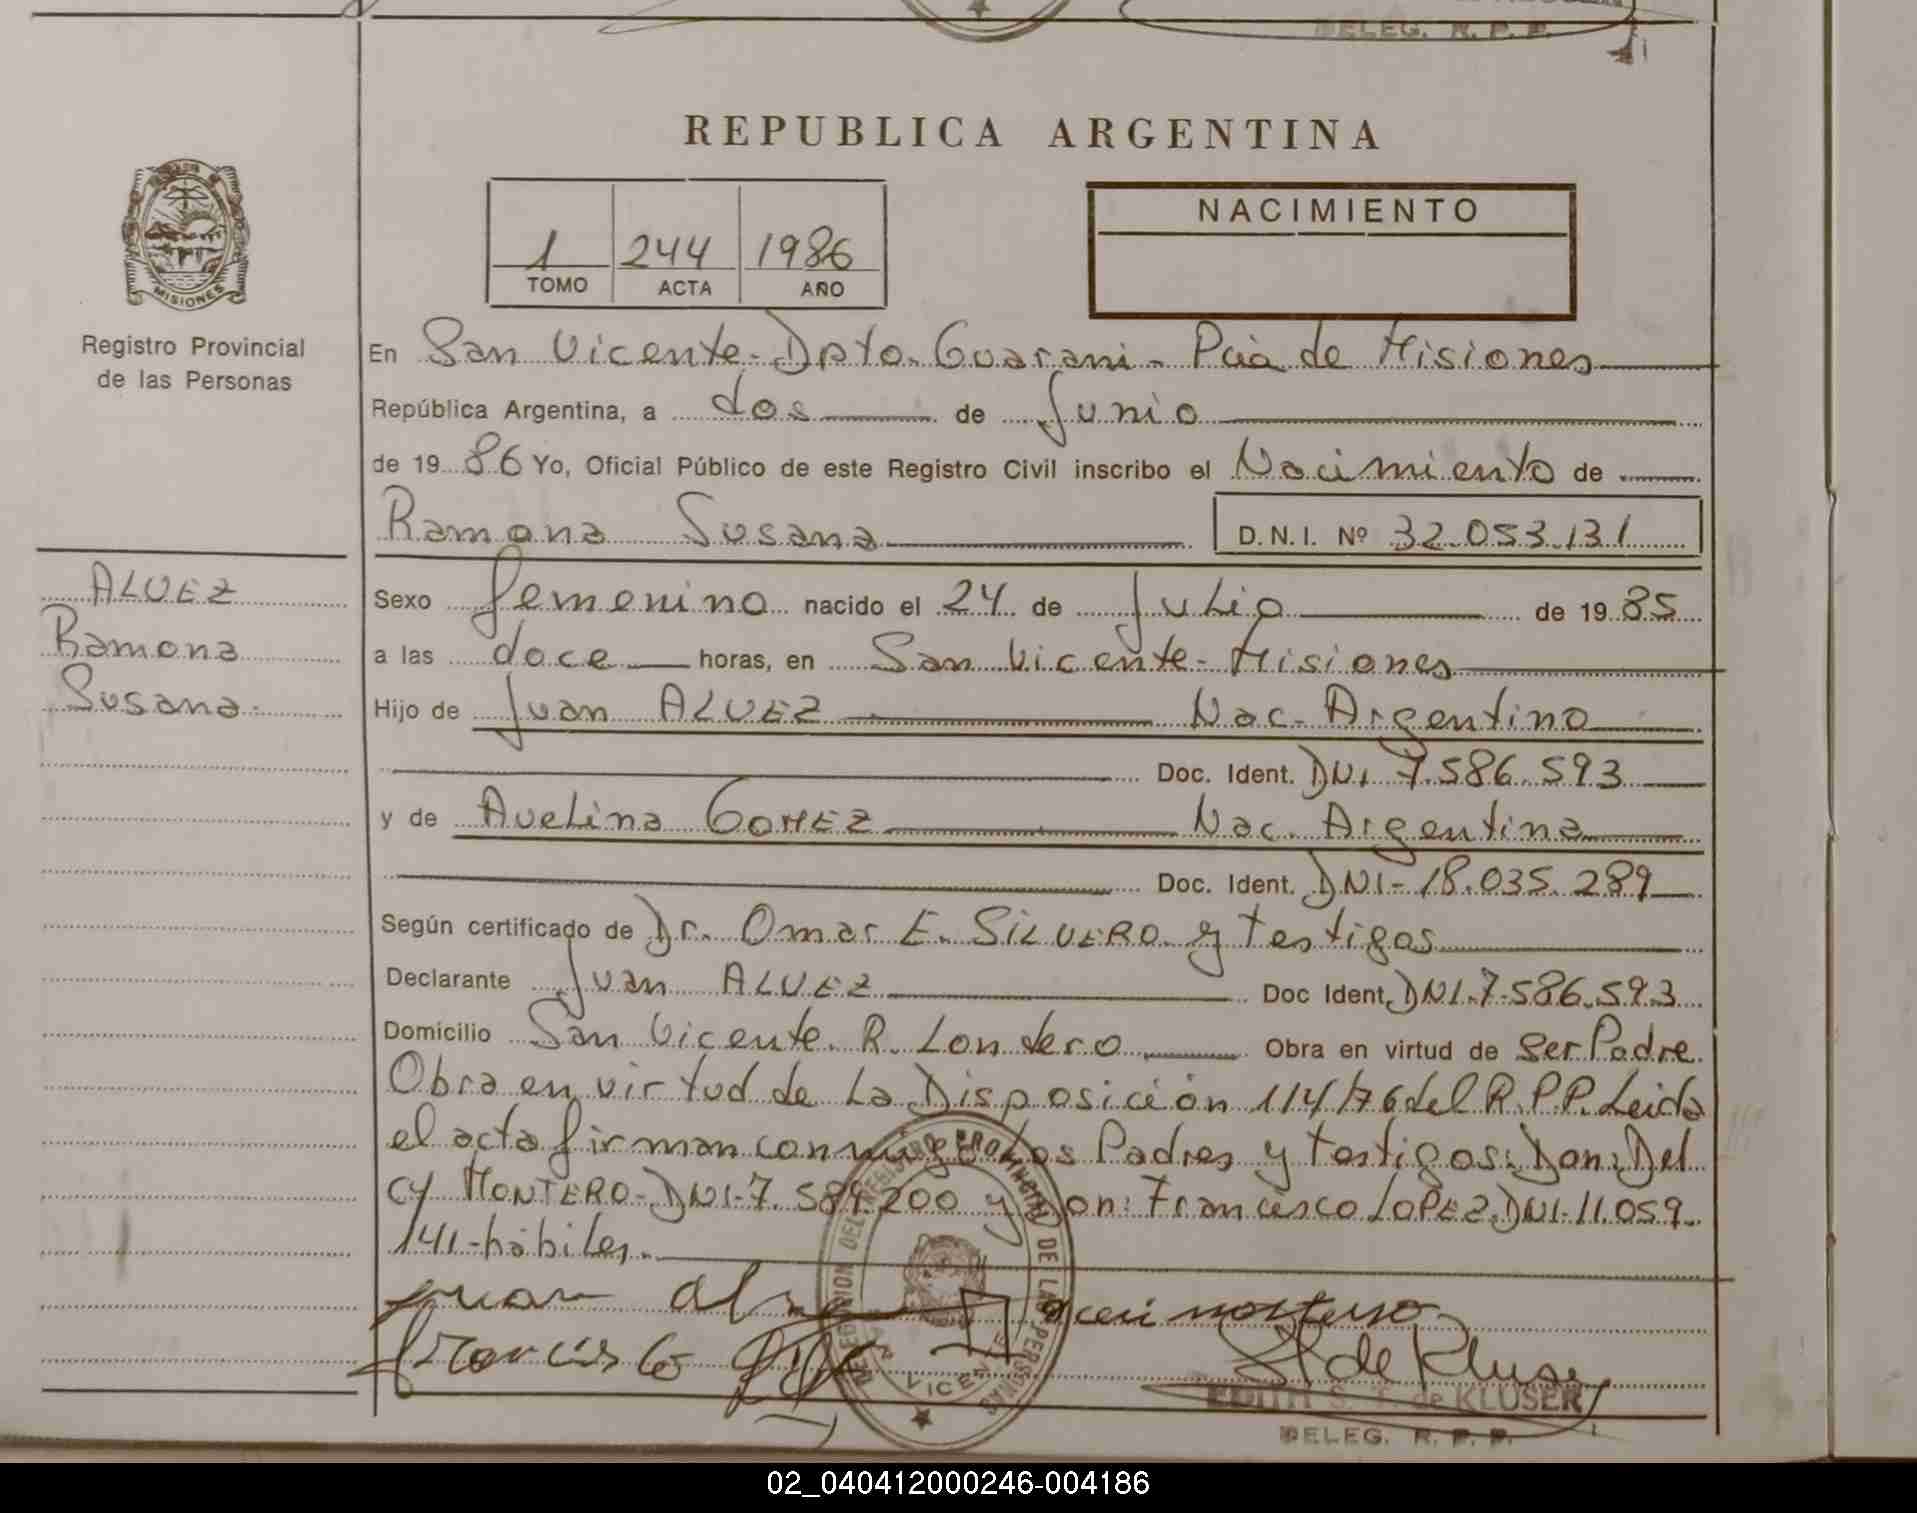 DELEG. R. P. P.
REPUBLICA ARGENTINA
1 244 1986
TOMO ACTA AÑO
NACIMIENTO
MISIONES
Registro Provincial
de las Personas
En San Vicente- Dpto. Guarani- Pcia de Misiones
República Argentina, a dos de Junio
de 1986 Yo, Oficial Público de este Registro Civil inscribo el Nacimiento de
Ramona Susana D.N.I. Nº 32.053.131
ALVEZ
Ramona
Susana.
Sexo femenino nacido el 24 de Julio de 1985
a las doce horas, en San Vicente- Misiones
Hijo de Juan ALVEZ Nac. Argentino
Doc. Ident. DNI 7.586.593
y de Avelina GOMEZ Nac. Argentina
Doc. Ident. DNI- 18.035.289
Según certificado de Dr. Omar E. SILVERO y testigos
Declarante Juan ALVEZ Doc Ident. DNI.7.586.593
Domicilio San Vicente. R. Londero Obra en virtud de Ser Padre.
Obra en virtud de La Disposición 114/76 del R.P.P. Leida
el acta firman conmigo Los Padres y testigos: Don: Del
cy MONTERO- DNI-7.589.200 y Don: Francisco LOPEZ. DNI-11.059.
141-hábiles.
juan
EDITH S. T. de KLUSER
DELEG. R. P. P.
DEL REGISTRO PROVINCIAL DE LAS PERSONAS
SAN VICENTE
02_040412000246-004186